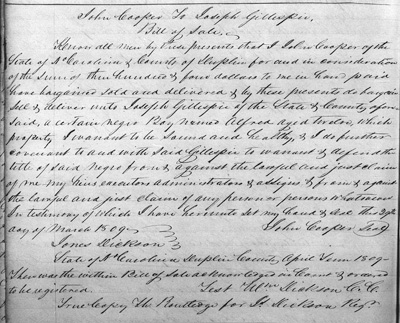 John Cooper To Joseph Gillespie,
Bill of Sale.
Know all men by these presents that I John Cooper of the
State of No Carolina & County of Duplin for and in consideration
of the sum of three hundred & four dollars to me in hand paid
have bargained sold and delivered & by these presents do bargain
sell & deliver unto Joseph Gillespie of the State & County afore
said, a certain negro Boy named Alfred aged twelve, which
property I warrant to be Sound and healthy, & I do further
covenant to and with said Gillespie to warrant & defend the
title of said Negro from & against the lawful and just claim
of me my heirs executors administrators & assigns & from & against
the lawful and just claim of any person or persons whatsoever
In testimony of which I have hereunto set my hand & seal this 29th
day of March 1809. John Cooper Seal
Jones Dickson
State of No Carolina Duplin County, April Term 1809
Then was the within Bill of Sale acknowledged in Court & ordered
to be registered. Test Wm Dickson C.C.
True Copy Th Routledge for Dickson Regr.